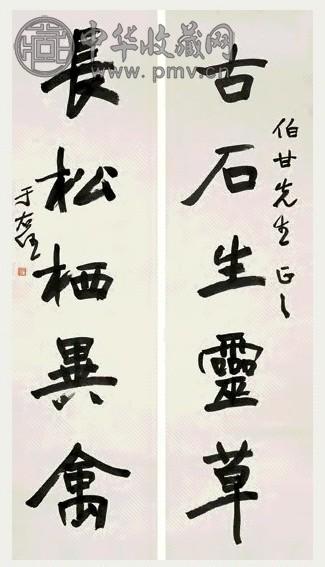 中华收藏网
www.pmv.cn
伯甘先生正之
古石生靈草
長松栖異禽
于右任